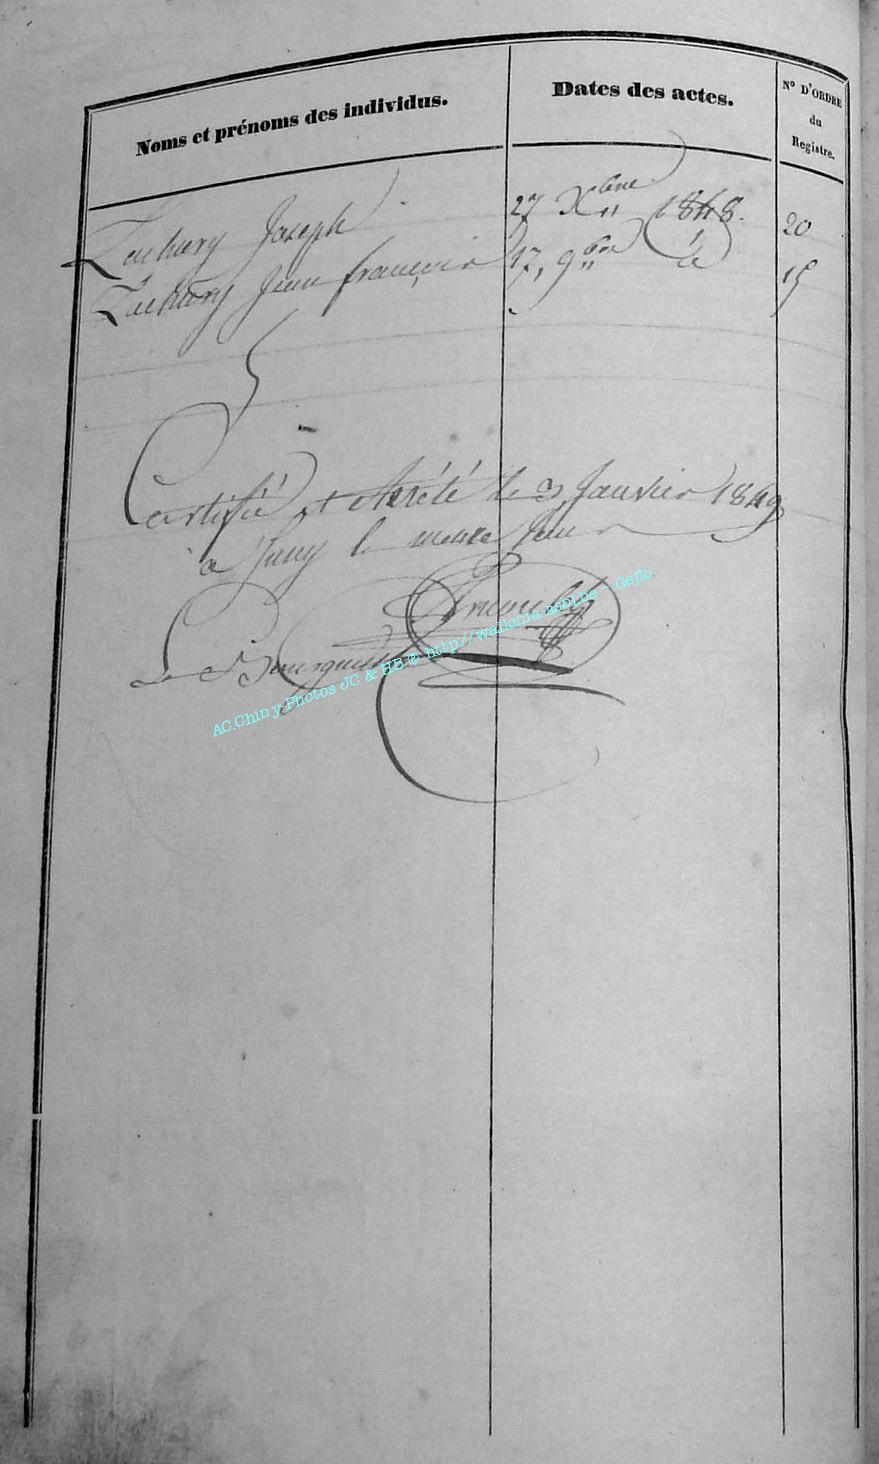 Noms et prénoms des individus.
Dates des actes.
N° D'ORDRE
du
Registre.
Zachary Joseph 27 Xbre 1848. 20
Zachary Jean françois 17, 9bre id 15
Certifié et Arrêté le 3 Janvier 1849
à le même jour
Le Bourgmestre
AC.Chiny-Photos JC & HB © http://wallonia-asbl.be - Geflo